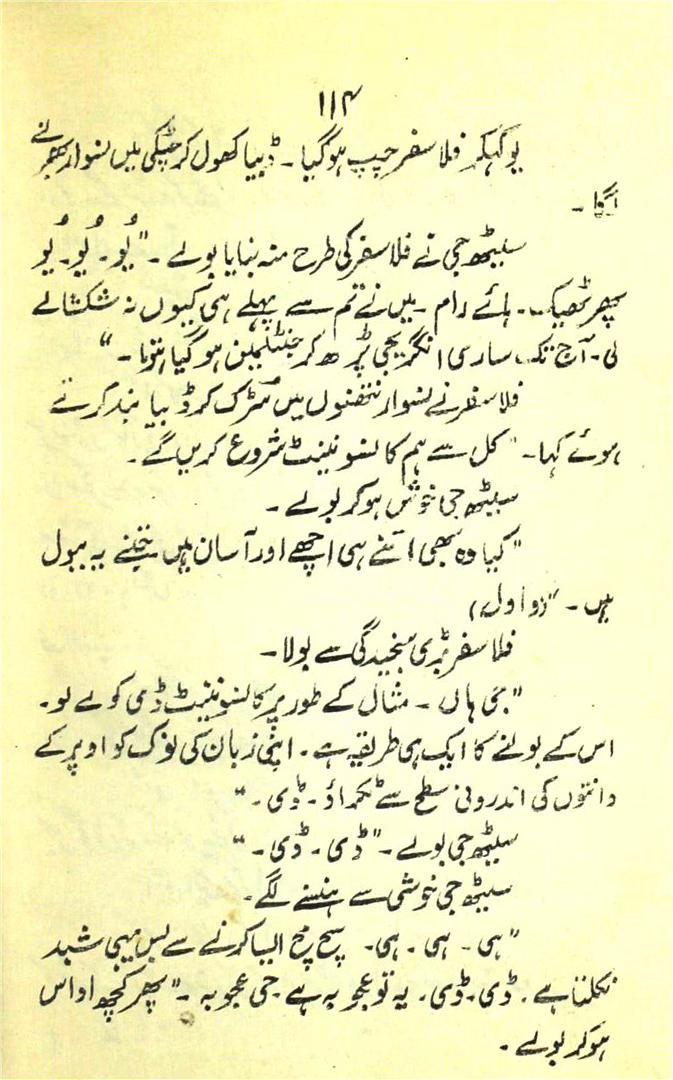 ۱۱۴
یو کہکر فلاسفر چپ ہو گیا۔ ڈبیا کھول کر چٹکی میں نسوار بھرنے
لگا۔
سیٹھ جی نے فلاسفر کی طرح منہ بنایا بولے۔ "یُو۔ یُو۔ یُو
پھر ٹھیک۔ ہائے رام۔ میں نے تم سے پہلے ہی کیوں نہ شکشالے
لی۔ آج تک ساری انگریجی پڑھ کر جنٹلمین ہو گیا ہوتا۔"
فلاسفر نے نسوار نتھنوں میں سُڑک کر ڈبیا بند کرتے
ہوئے کہا۔ "کل سے ہم کانسونینٹ شروع کریں گے۔
سیٹھ جی خوش ہو کر بولے۔
"کیا وہ بھی اتنے ہی اچھے اور آسان ہیں جتنے یہ ببول
ہیں۔ "(واول)
فلاسفر بڑی سنجیدگی سے بولا۔
"جی ہاں۔ مثال کے طور پر کانسونینٹ ڈی کو لے لو۔
اس کے بولنے کا ایک ہی طریقہ ہے۔ اپنی زبان کی نوک کو اوپر کے
دانتوں کی اندرونی سطح سے ٹکراؤ۔ ڈی۔"
سیٹھ جی بولے۔ "ڈی۔ ڈی۔"
سیٹھ جی خوشی سے ہنسنے لگے۔
"ہی۔ ہی۔ ہی۔ سچ مچ ایسا کرنے سے بس یہی شبد
نکلتا ہے۔ ڈی۔ ڈی۔ یہ تو عجوبہ ہے جی عجوبہ۔" پھر کچھ اداس
ہو کر بولے۔